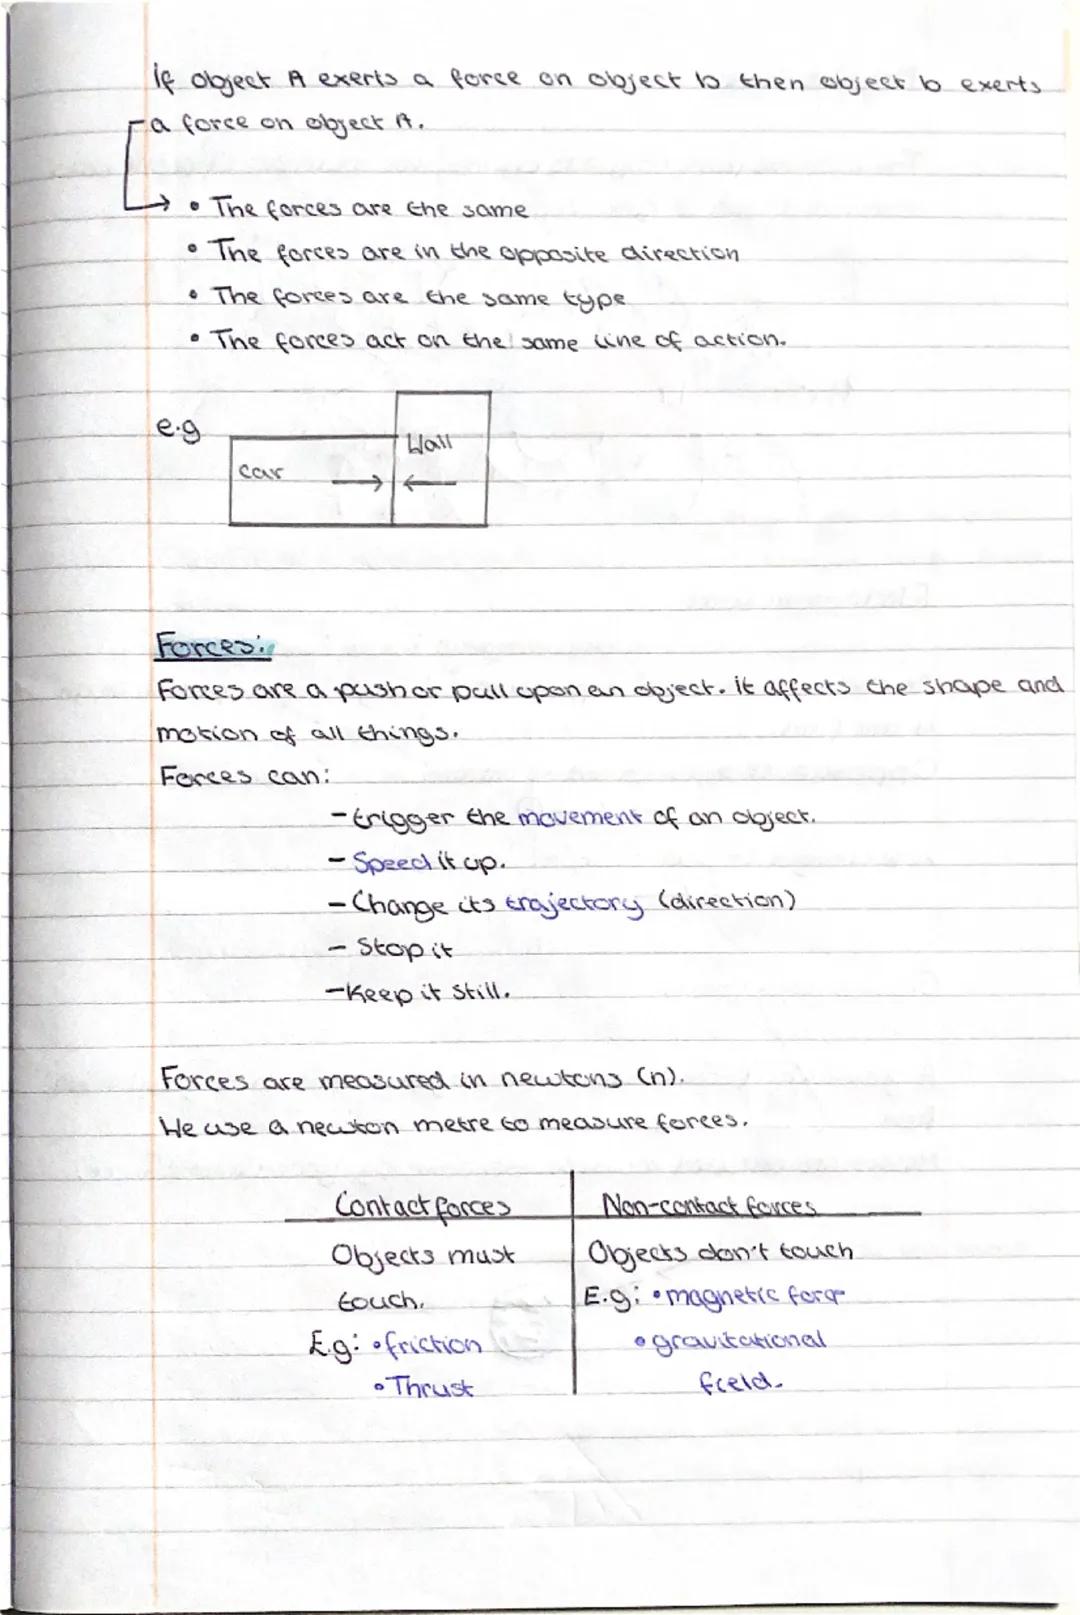 If object A exerts a force on object b then object b exerts
a force on object A.
• The forces are the same
• The forces are in the opposite direction
• The forces are the same type
• The forces act on the same line of action.
e.g
Wall
car
Forces:
Forces are a push or pull upon an object. it affects the shape and
motion of all things.
Forces can:
- trigger the movement of an object.
- Speed it up.
- Change its trajectory (direction)
- Stop it
- Keep it still.
Forces are measured in newtons (n).
We use a newton metre to measure forces.
Contact forces
Objects must
touch.
E.g: • friction
• Thrust
Non-contact forces
Objects don't touch
E.g: • magnetic force
• gravitational
field.